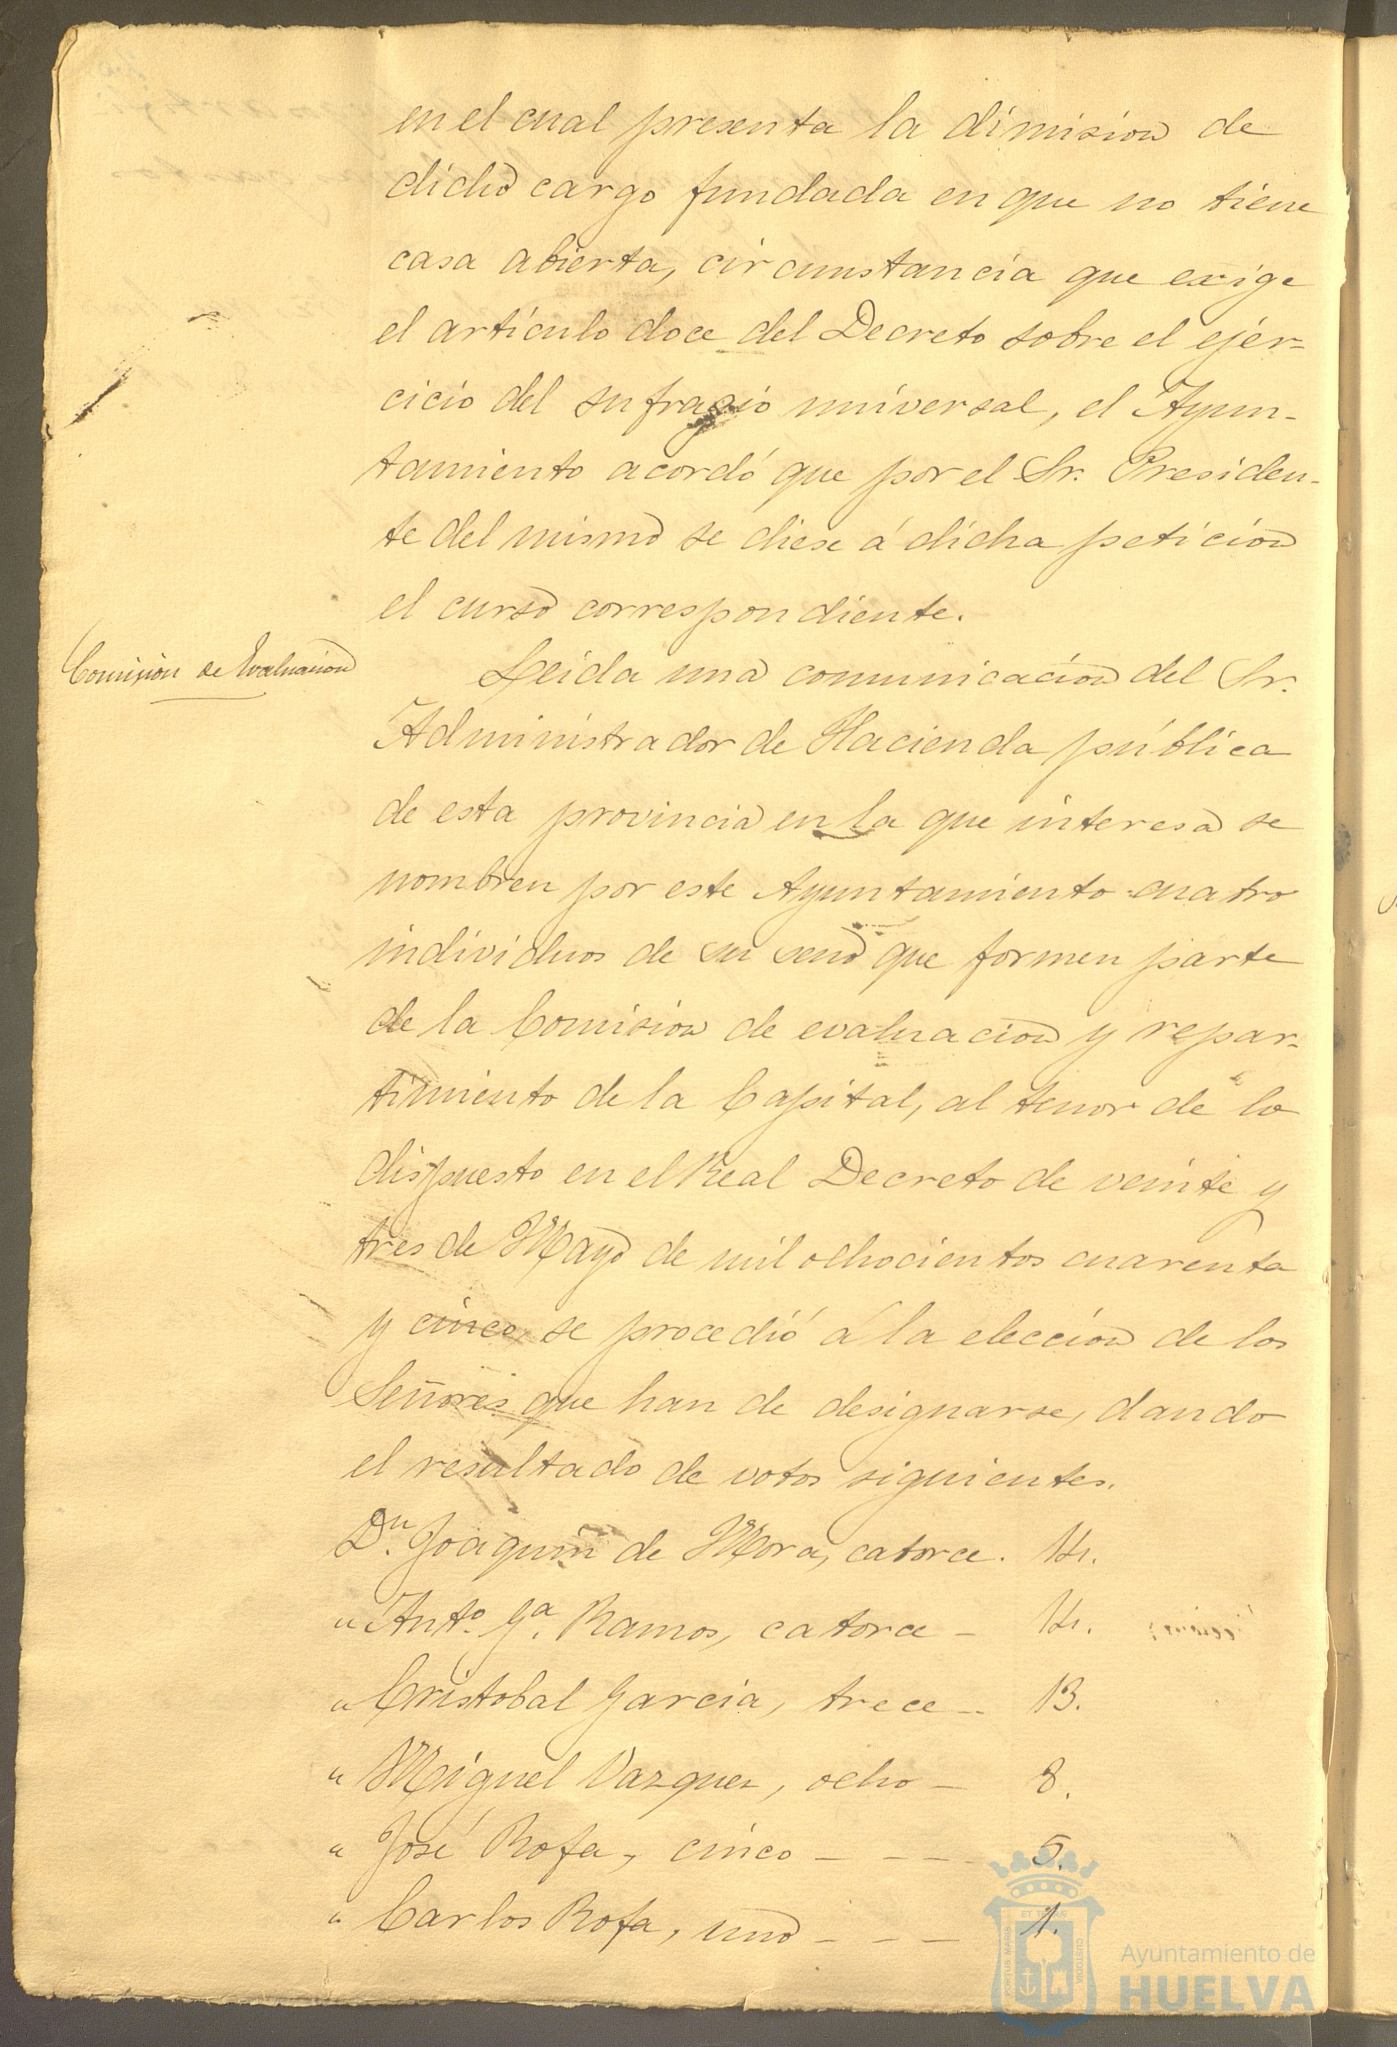 en el cual presenta la dimision de
dicho cargo fundada en que no tiene
casa abierta, circunstancia que exige
el artículo doce del Decreto sobre el ejer-
cicio del sufragio universal, el Ayun-
tamiento acordó que por el Sr. Presiden-
te del mismo se diese á dicha peticion
el curso correspondiente.
Comision de Evaluacion
Leida una comunicacion del Sr.
Administrador de Hacienda pública
de esta provincia en la que interesa se
nombren por este Ayuntamiento cuatro
individuos de su seno que formen parte
de la Comision de evaluacion y repar-
timiento de la Capital, al tenor de lo
dispuesto en el Real Decreto de veinte y
tres de Mayo de mil ochocientos cuarenta
y cinco, se procedió á la eleccion de los
Señores que han de designarse, dando
el resultado de votos siguientes.
Dn. Joaquin de Mora, catorce. 14.
" Anto. Ga. Ramos, catorce - 14.
" Cristobal Garcia, trece -- 13.
" Miguel Vazquez, ocho - 8.
" José Rofa, cinco - - - - 5.
" Carlos Rofa, uno - - - 1.
Ayuntamiento de
HUELVA